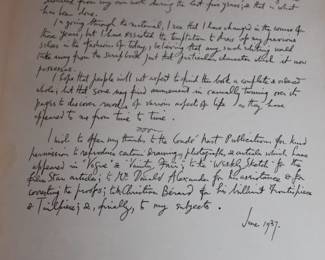 selected from my own work during the last five years; & that is what
has been done.
In going through the material, I see that I have changed in the course of
these years, but I have resisted the temptation to dress up my previous
selves in the fashions of today, believing that any such whitening would
take away from the scrapbook just that particular character which it now
possesses.
I hope that people will not expect to find the book a complete & reasoned
whole; but that some may find amusement in casually turning over its
pages to discover records of various aspects of life as they have
appeared to me from time to time.
I wish to offer my thanks to the Condé Nast Publications for kind
permission to reproduce certain Drawings, photographs & articles which have
appeared in 'Vogue' & 'Vanity Fair'; to the 'Weekly Sketch' for
Film Star articles; to Mr. Donald Alexander for his assistance & for
correcting the proofs; to Christian Bérard for his brilliant Frontispiece
& Tailpiece; &, finally, to my subjects.
June 1937.